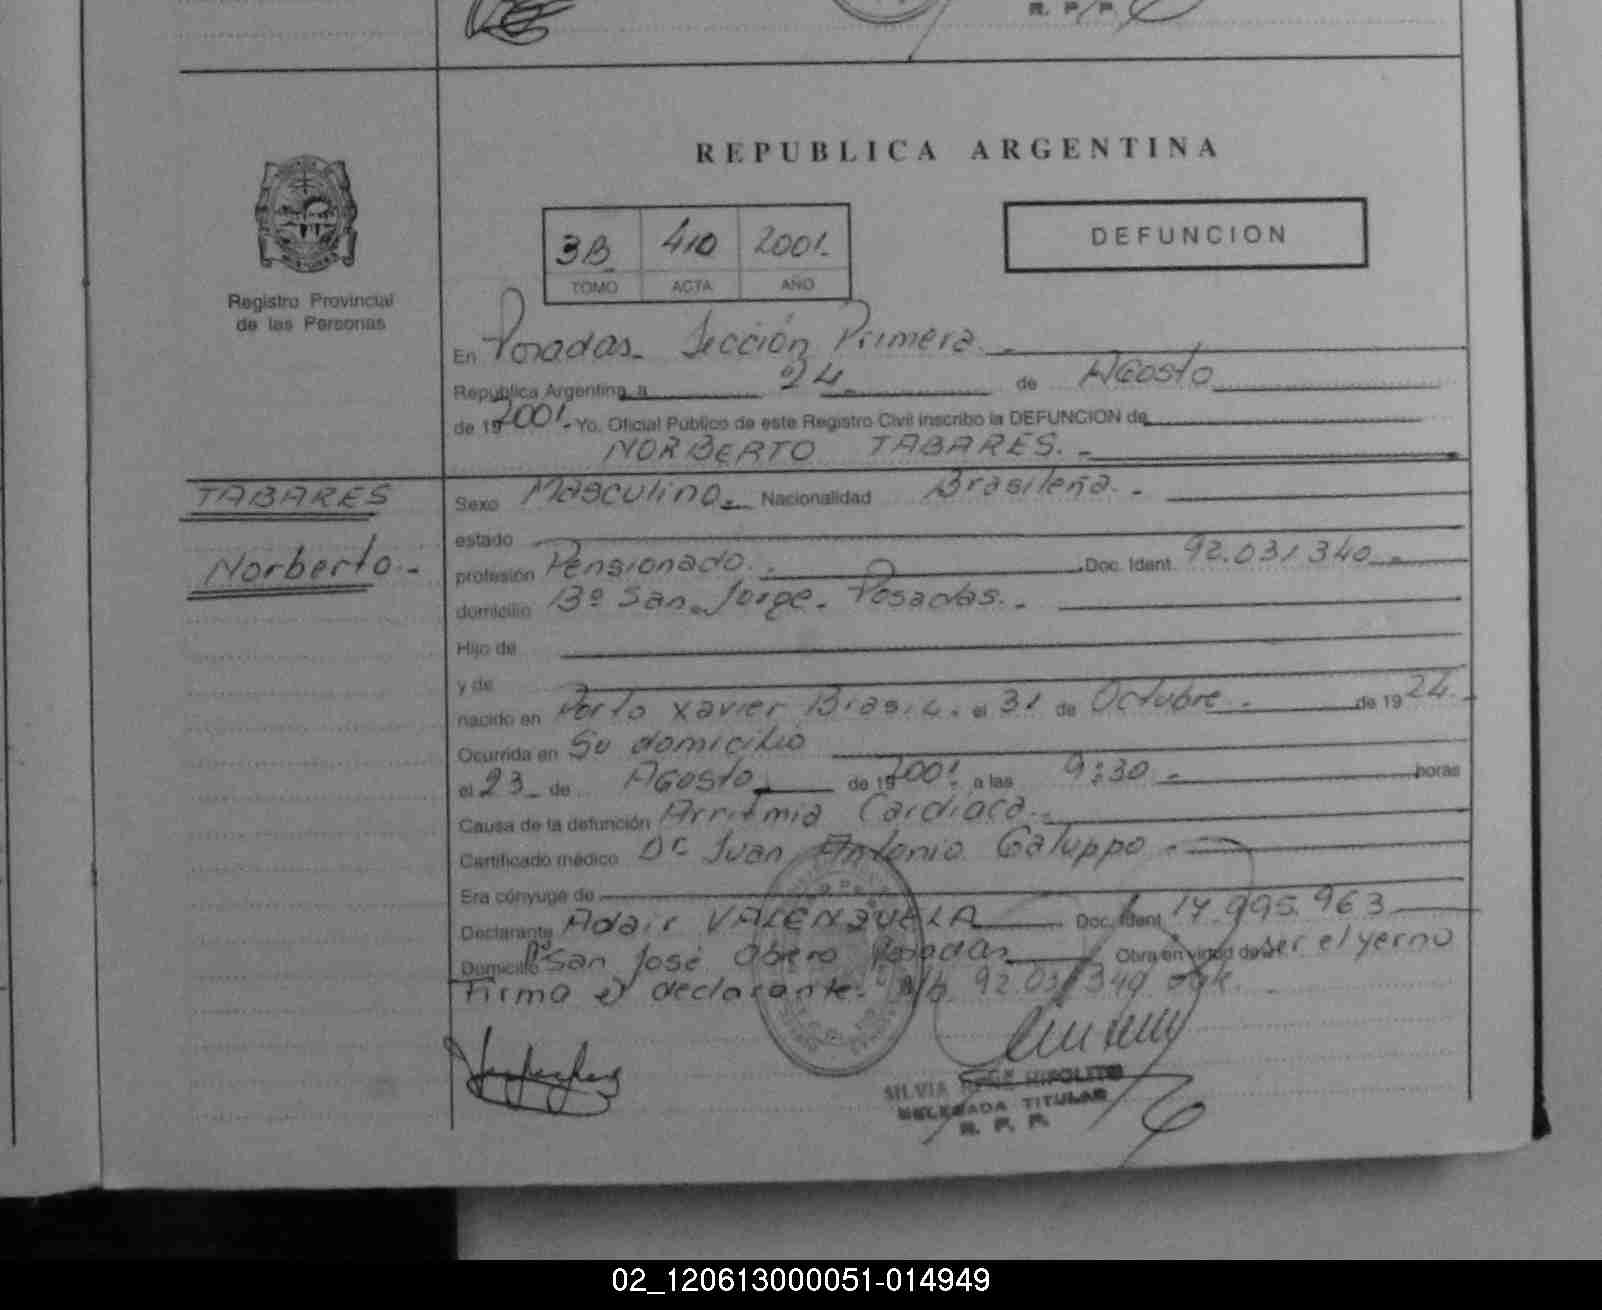 R. P. P.
REPUBLICA ARGENTINA
3B 410 2001.
TOMO ACTA AÑO
DEFUNCION
Registro Provincial
de las Personas
En Posadas. Sección Primera.
República Argentina a 24 de Agosto
de 19 2001. Yo, Oficial Público de este Registro Civil inscribo la DEFUNCION de
NORBERTO TABARES.
TABARES
Norberto.
Sexo Masculino. Nacionalidad Brasileña.
estado
profesión Pensionado. Doc. Ident. 92.031.340
domicilio Bº San Jorge. Posadas.
Hijo de
y de
nacido en Porto Xavier Brasil. el 31 de Octubre de 19 24.
Ocurrida en Su domicilio
el 23 de Agosto de 19 2001. a las 9:30 horas
Causa de la defunción Arritmia Cardiaca.
Certificado médico Dr Juan Antonio Galuppo
Era cónyuge de
Declarante Adair VALENZUELA Doc. Ident. 17.995.963
Domicilio Bº San José Obrero Posadas Obra en virtud de Ser el yerno
Firma el declarante.
SILVIA HIPOLITO
DELEGADA TITULAR
R. P. P.
02_120613000051-014949